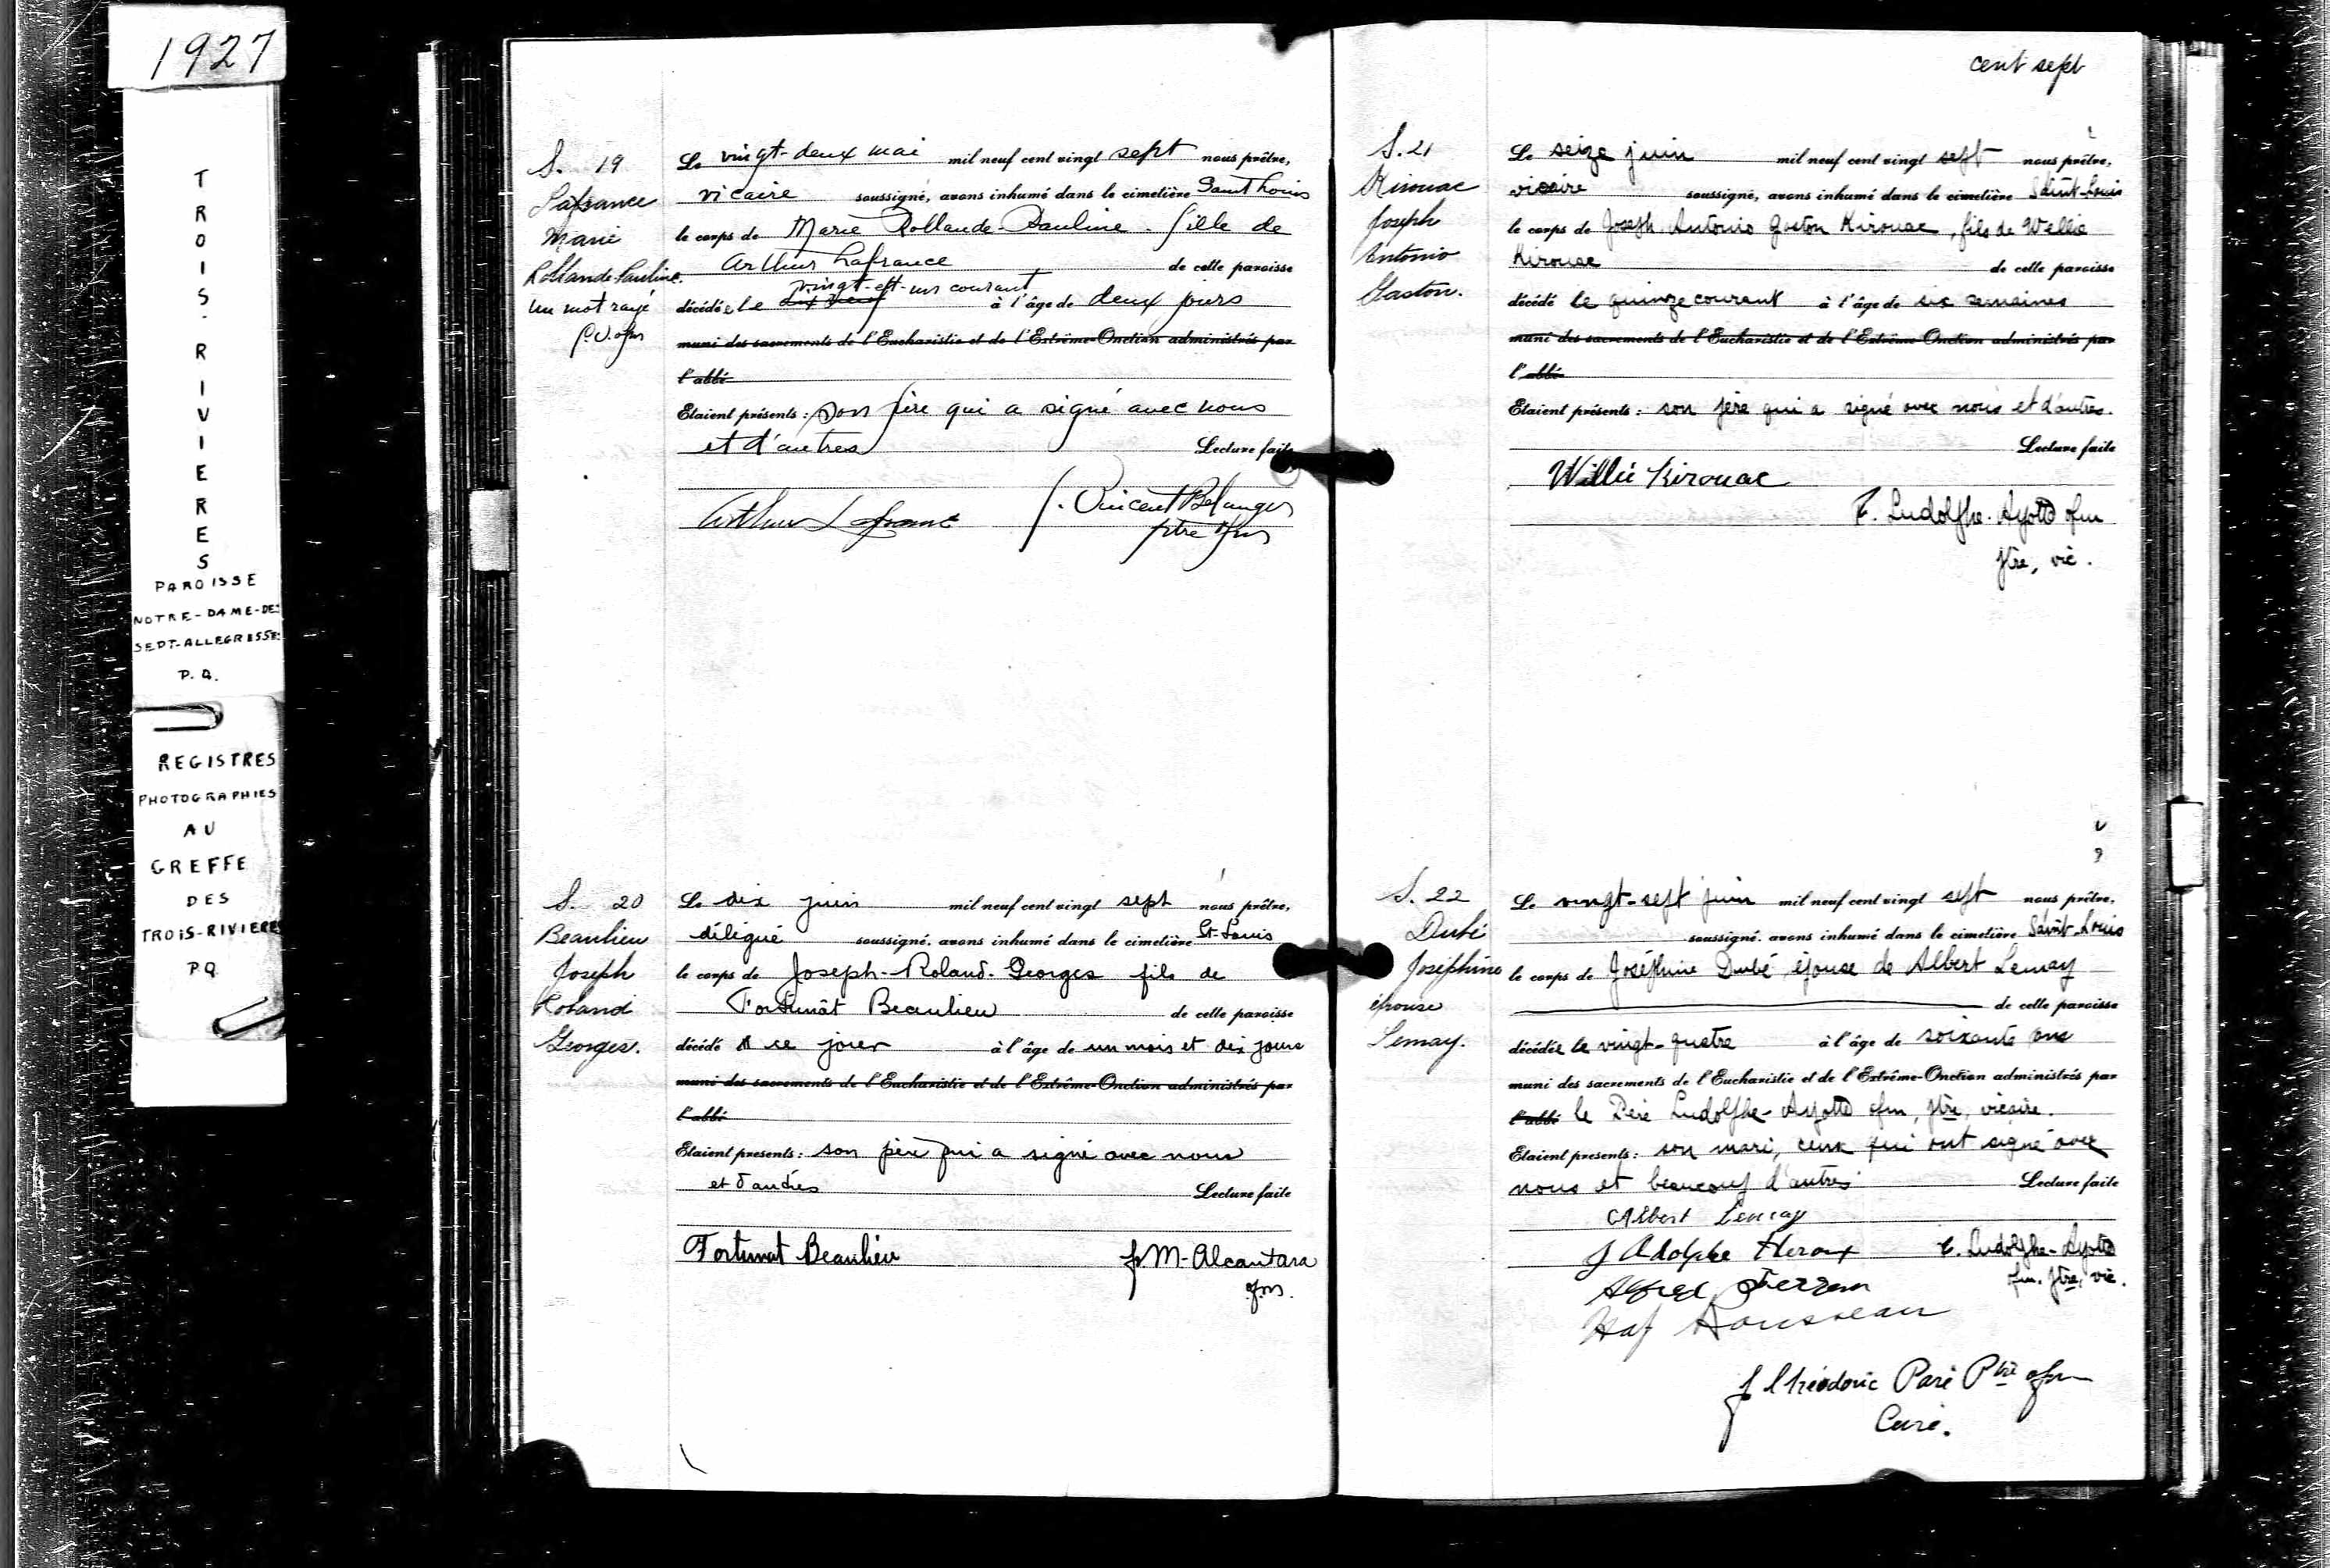 1927
TROIS-RIVIERES
PAROISSE
NOTRE-DAME-DES
SEPT-ALLEGRESSES
P.Q.
REGISTRES
PHOTOGRAPHIES
AU
GREFFE
DES
TROIS-RIVIERES
P.Q.
S. 19
Lafrance
Marie
Rollande-Pauline.
Un mot rayé
Le vingt-deux mai mil neuf cent vingt sept nous prêtre,
vicaire soussigné, avons inhumé dans le cimetière Saint Louis
le corps de Marie Rollande-Pauline. fille de
Arthur Lafrance de cette paroisse
vingt-et-un courant
décédée le à l'âge de deux jours
muni des sacrements de l'Eucharistie et de l'Extrême-Onction administrés par
l'abbé
Etaient présents : son père qui a signé avec nous
et d'autres Lecture faite
Arthur Lafrance f. Vincent Belanger
ptre ofm
S. 20
Beaulieu
Joseph
Roland
Georges.
Le dix juin mil neuf cent vingt sept nous prêtre,
délégué soussigné. avons inhumé dans le cimetière St-Louis
le corps de Joseph-Roland-Georges fils de
Fortunât Beaulieu de cette paroisse
décédé ce jour à l'âge de un mois et dix jours
muni des sacrements de l'Eucharistie et de l'Extrême-Onction administrés par
l'abbé
Etaient presents : son père qui a signé avec nous
et d'autres Lecture faite
Fortunat Beaulieu f. M-Alcantara
ofm.
cent sept
S. 21
Kirouac
Joseph
Antonio
Gaston.
Le seize juin mil neuf cent vingt sept nous prêtre,
vicaire soussigné, avons inhumé dans le cimetière Saint-Louis
le corps de Joseph Antonio Gaston Kirouac, fils de Wellie
Kirouac de cette paroisse
décédé le quinze courant à l'âge de six semaines
muni des sacrements de l'Eucharistie et de l'Extrême-Onction administrés par
l'abbé
Etaient présents : son père qui a signé avec nous et d'autres.
Lecture faite
Willie Kirouac
F. Ludolphe-Ayotte ofm
ptre, vic.
S. 22
Dubé
Joséphine
épouse
Lemay.
Le vingt-sept juin mil neuf cent vingt sept nous prêtre,
soussigné. avons inhumé dans le cimetière Saint-Louis
le corps de Joséphine Dubé, épouse de Albert Lemay
de cette paroisse
décédée le vingt-quatre à l'âge de soixante ans
muni des sacrements de l'Eucharistie et de l'Extrême-Onction administrés par
l'abbé le Père Ludolphe-Ayotte ofm, ptre, vicaire.
Etaient presents : son mari, ceux qui ont signé avec
nous et beaucoup d'autres Lecture faite
Albert Lemay
J Adolphe Heroux F. Ludolphe-Ayotte
ofm. ptre, vic.
Alfred
Rousseau
f. Théodoric Paré Ptre ofm
Curé.